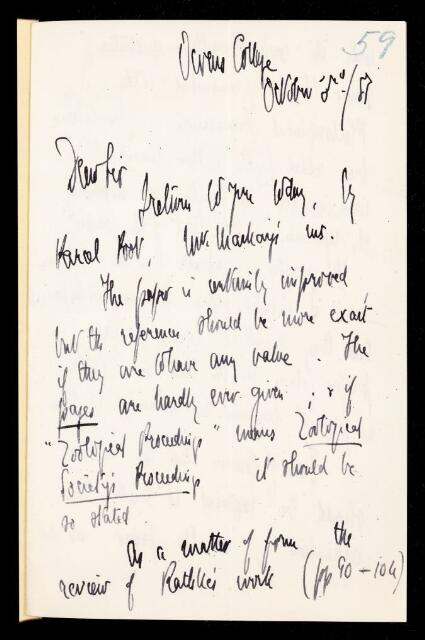 59
Owens College
October 3rd/87
Dear Sir
I return to you today, by
Parcel Post, Mr. Mackay's ms.
The paper is certainly improved,
but the references should be more exact
if they are to have any value. The
pages are hardly ever given; & if
"Zoological Proceedings" means Zoological
Society's Proceedings it should be
so stated.
As a matter of form the
review of Rathke's work (pp 90-104)